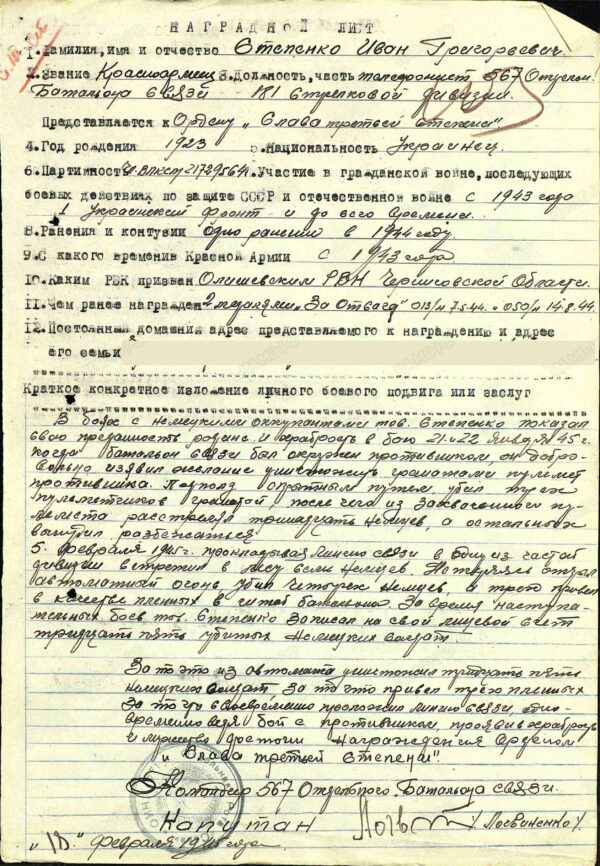 НАГРАДНОЙ ЛИСТ
1. Фамилия, имя и отчество Степенко Иван Григорьевич.
2. Звание Красноармеец 3. Должность, часть телефонист 567 Отдельн.
Батальона Связи 181 Стрелковой дивизии.
Представляется к Ордену "Слава третьей степени"
4. Год рождения 1923 5. Национальность Украинец
6. Партийность 7. Участие в гражданской войне, последующих
боевых действиях по защите СССР и отечественной войне с 1943 года
1 Украинский фронт и до сего времени.
8. Ранения и контузии одно ранение в 1944 году.
9. С какого времени в Красной Армии с 1943 года
10. Каким РВК призван Олишевским РВК Черниговской Области.
11. Чем ранее награжден 2 медалями "За Отвагу" 013/н 7.5.44. 050/н 14.8.44.
12. Постоянный домашний адрес представляемого к награждению и адрес
его семьи
Краткое конкретное изложение личного боевого подвига или заслуг
В боях с немецкими оккупантами тов. Степенко показал
свою преданность родине и храбрость в бою 21-22 Января 45 г.
когда батальон связи был окружен противником, он добро-
вольно изявил желание уничтожить гранатами пулемет
противника. Подполз скрытным путем, убил трех
пулеметчиков гранатой, после чего из захваченного пу-
лемета расстрелял тринадцать немцев, а остальных
вынудил разбежаться
5. февраля 1945 г. прокладывая линию связи в одну из частей
дивизии встретил в лесу немцев. Не теряясь открыл
автоматной огонь убил четырех немцев, а трех привел
в качестве пленных в штаб батальона. За время наступа-
тельных боев тов. Степенко записал на свой лицевой счет
тридцать пять убитых немецких солдат.
За то что из автомата уничтожил тридцать пять
немецких солдат, за то что привел трех пленных
За то что своевременно проложил линию связи, одно-
временно ведя бой с противником, проявив храбрость
и мужество достоин награждения Орденом
"Слава третьей степени".
Командир 567 Отдельного Батальона Связи.
Капитан /Логвиненко/.
февраля 1945 года